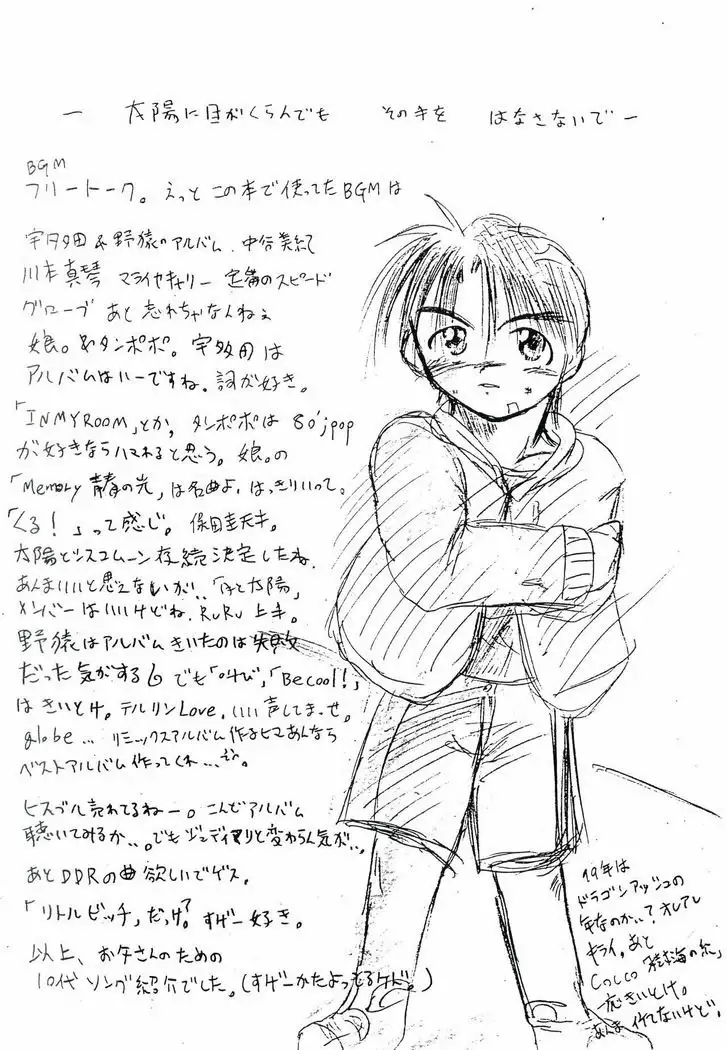 ー 太陽に目がくらんでも その手を はなさないでー
BGM
フリートーク。えっと この本で使ってたBGMは
宇多田&野猿のアルバム、中谷美紀
川本真琴 マライヤキャリー 定番のスピード
グローブ あと 忘れちゃなんねぇ
娘。&タンポポ。宇多田は
アルバムはいーですね。詞が好き。
「INMYROOM」とか、タンポポは 80'jpop
が好きならハマれると思う。娘。の
「Memory 青春の光」は名曲よ、はっきりいって。
「くる!」って感じ。保田圭天才。
太陽とシスコムーン存続決定したね、
あんまいいと思えないが、、「月と太陽」
メンバーはいいけどね、RuRu 上手。
野猿はアルバムきいたのは失敗
だった気がする でも「叫び」,「Be cool!」
は きいとけ。テルリンLove、いい声してまっせ。
globe… リミックスアルバム作るヒマあんなら
ベストアルバム作ってくれ…
ヒスブル売れてるねー。こんどアルバム
聴いてみるか、、。でもジュディマリと変わらん気が、、、
あとDDRの曲欲しいでゲス。
「リトルビッチ」だっけ?すげー好き。
以上、お年さんのための
10代ソング紹介でした。(すげーかたよってるケド。)
19年は
ドラゴンアッシュの
年なのか、、?オレアレ
キライ。あと
Cocco「樹海の糸」
一応きいとけ。
あんま 似てないけど。